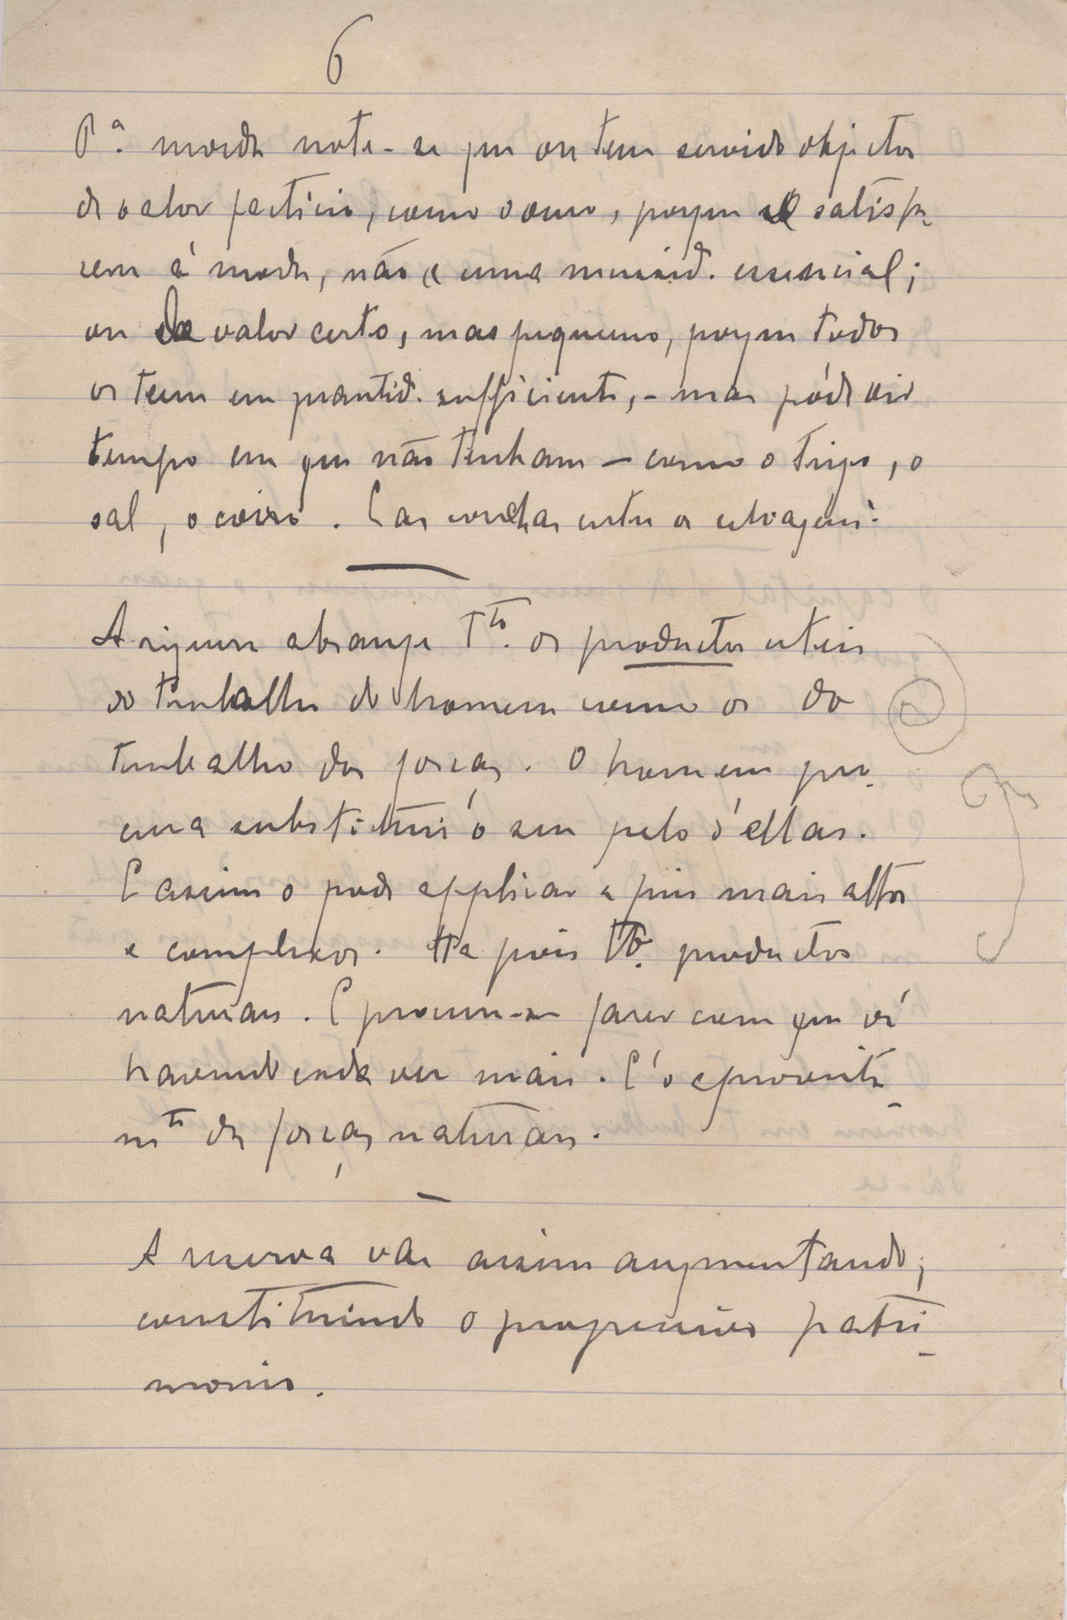 6
P.ª moeda note-se que ou tem servido objectos
de valor facticio, como o ouro, porque só satisfa-
zem á moda, não a uma necessid. essencial;
ou de valor certo, mas pequeno, porque todos
os teem em quantid. sufficiente, - mas póde vir
tempo em que não tenham - como o trigo, o
sal, o coiro. E as conchas entre os selvagens.
A riqueza abrange T.to os productos uteis
do trabalho do homem como os do
trabalho das forças. O homem pro-
cura substituir o seu pelo d'ellas.
E assim o pode applicar a fins mais altos
e complexos. Ha pois productos
naturaes. E procura-se fazer com que vá
havendo cada vez mais. É o aproveita-
m.to das forças naturaes.
A reserva vae assim augmentando,
constituindo o progressivo patri-
monio.